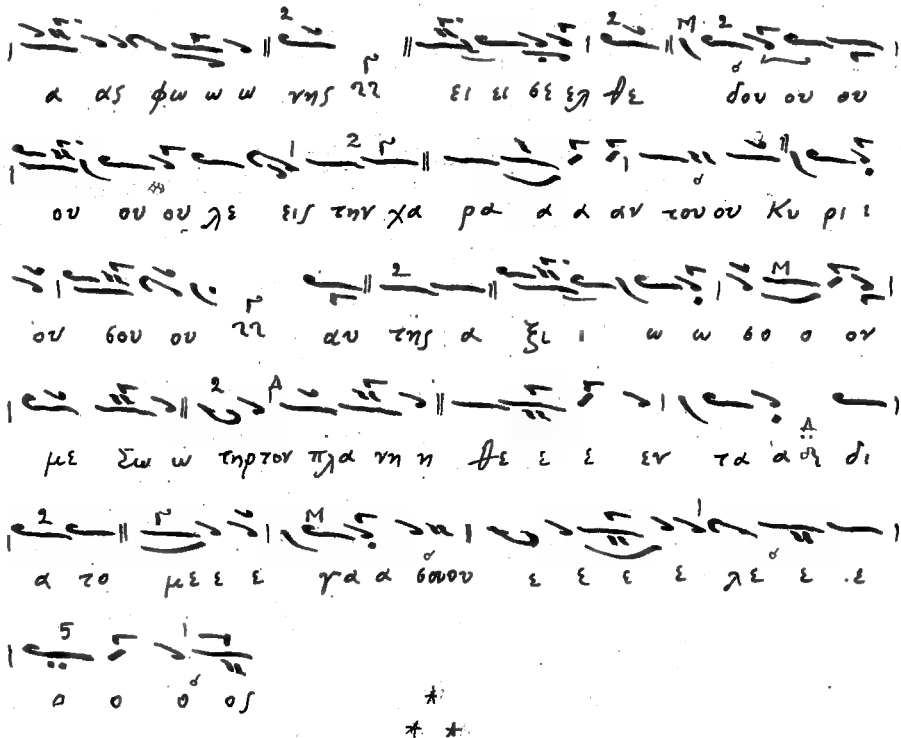 α ας φω ω ω νης ει ει σε ελ θε δου ου ου
ου ου ου λε εις την χα ρα α α αν του ου Κυ ρι ι
ου σου ου αυ της α ξι ι ω ω σο ο ον
με Σω ω τηρ τον πλα νη η θε ε ε εν τα α δι
α το με ε ε γα α σου ου ε ε ε ε λε ε ε
ο ο ο ος